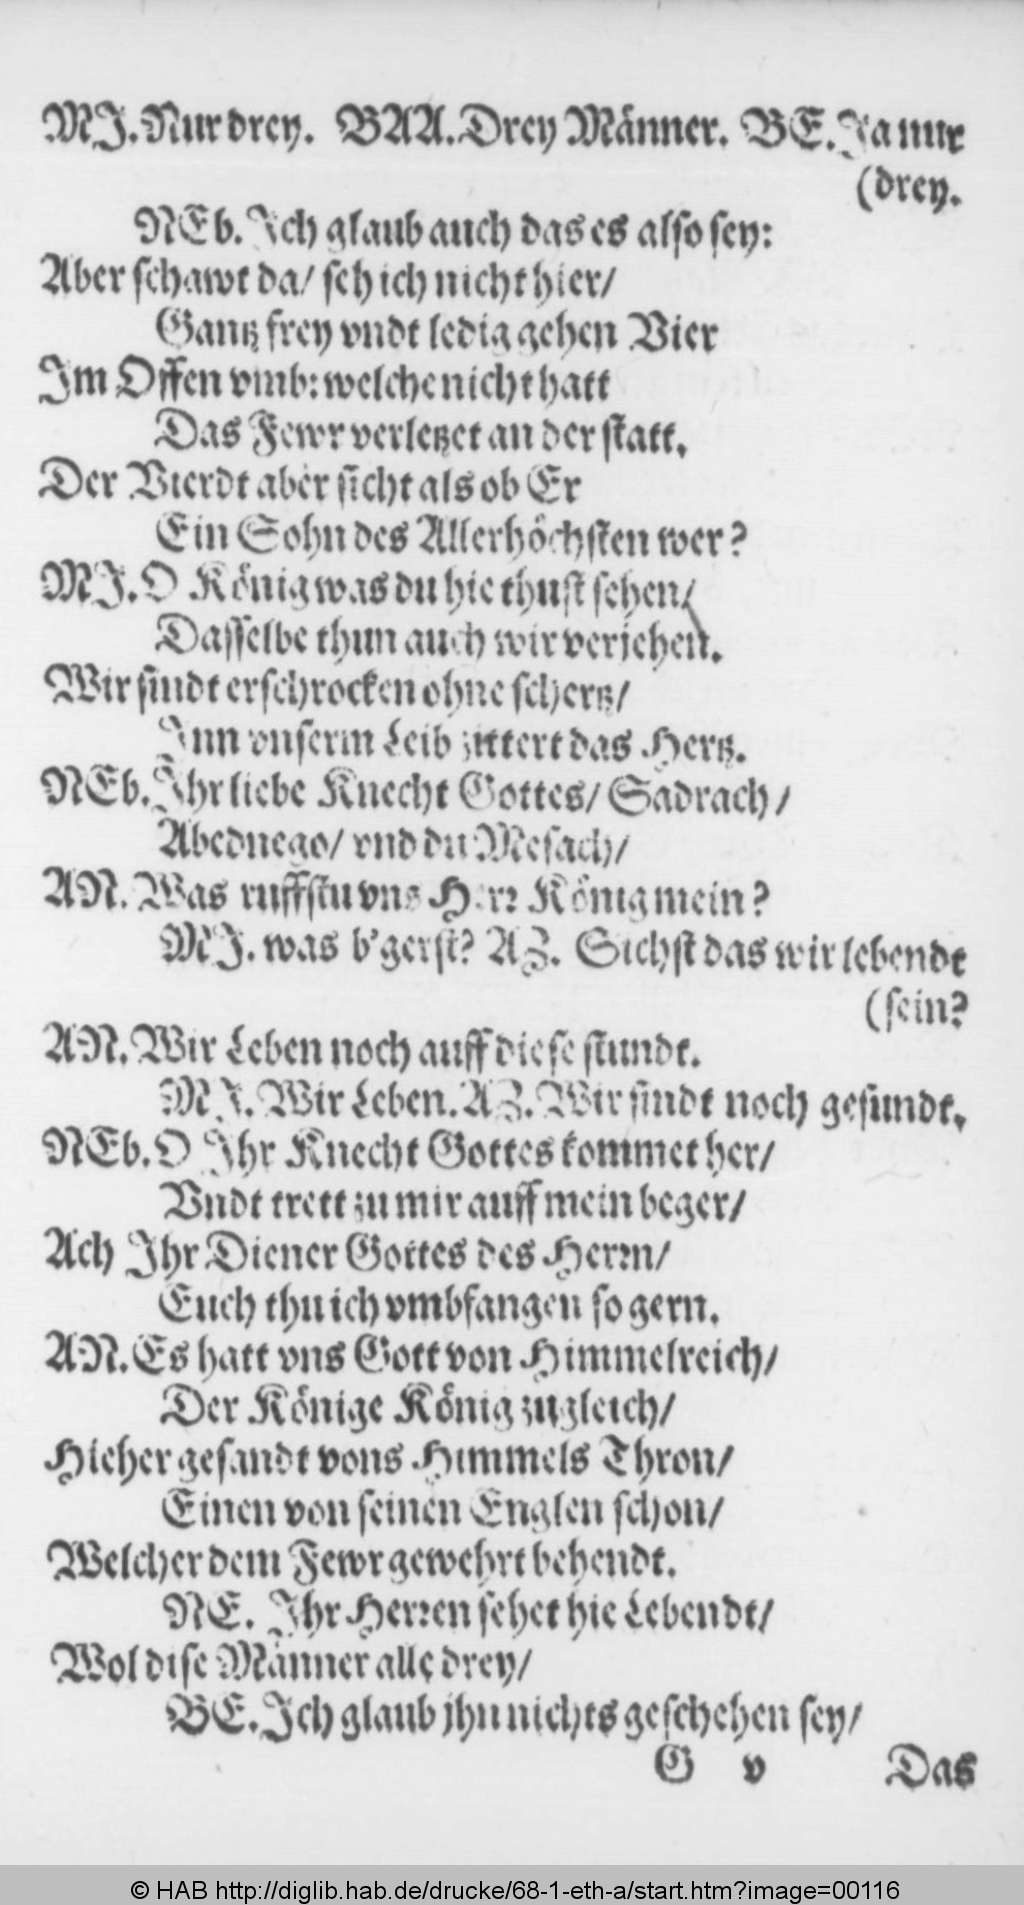 MJ. Nur drey. BAA. Drey Männer. BE. Ja nur
(drey.
NEb. Ich glaub auch das es also sey:
Aber schawt da/ seh ich nicht hier/
Gantz frey vndt ledig gehen Vier
Im Offen vmb: welche nicht hatt
Das Fewr verletzet an der statt.
Der Vierdt aber sicht als ob Er
Ein Sohn des Allerhöchsten wer?
MJ. O König was du hie thust sehen/
Dasselbe thun auch wir verjehen.
Wir sindt erschrocken ohne schertz/
Inn vnserm Leib zittert das Hertz.
NEb. Ihr liebe Knecht Gottes/ Sadrach/
Abednego/ vnd du Mesach/
AN. Was ruffstu vns Herr König mein?
MJ. was b'gerst? AZ. Sichst das wir lebendt
(sein?
AN. Wir Leben noch auff diese stundt.
MJ. Wir Leben. AZ. Wir sindt noch gesundt.
NEb. O Ihr Knecht Gottes kommet her/
Vndt trett zu mir auff mein beger/
Ach Ihr Diener Gottes des Herrn/
Euch thu ich vmbfangen so gern.
AN. Es hatt vns Gott von Himmelreich/
Der Könige König zugleich/
Hieher gesandt vons Himmels Thron/
Einen von seinen Englen schon/
Welcher dem Fewr gewehrt behendt.
NE. Ihr Herren sehet hie Lebendt/
Wol dise Männer alle drey/
BE. Ich glaub jhn nichts geschehen sey/
G v Das
© HAB http://diglib.hab.de/drucke/68-1-eth-a/start.htm?image=00116